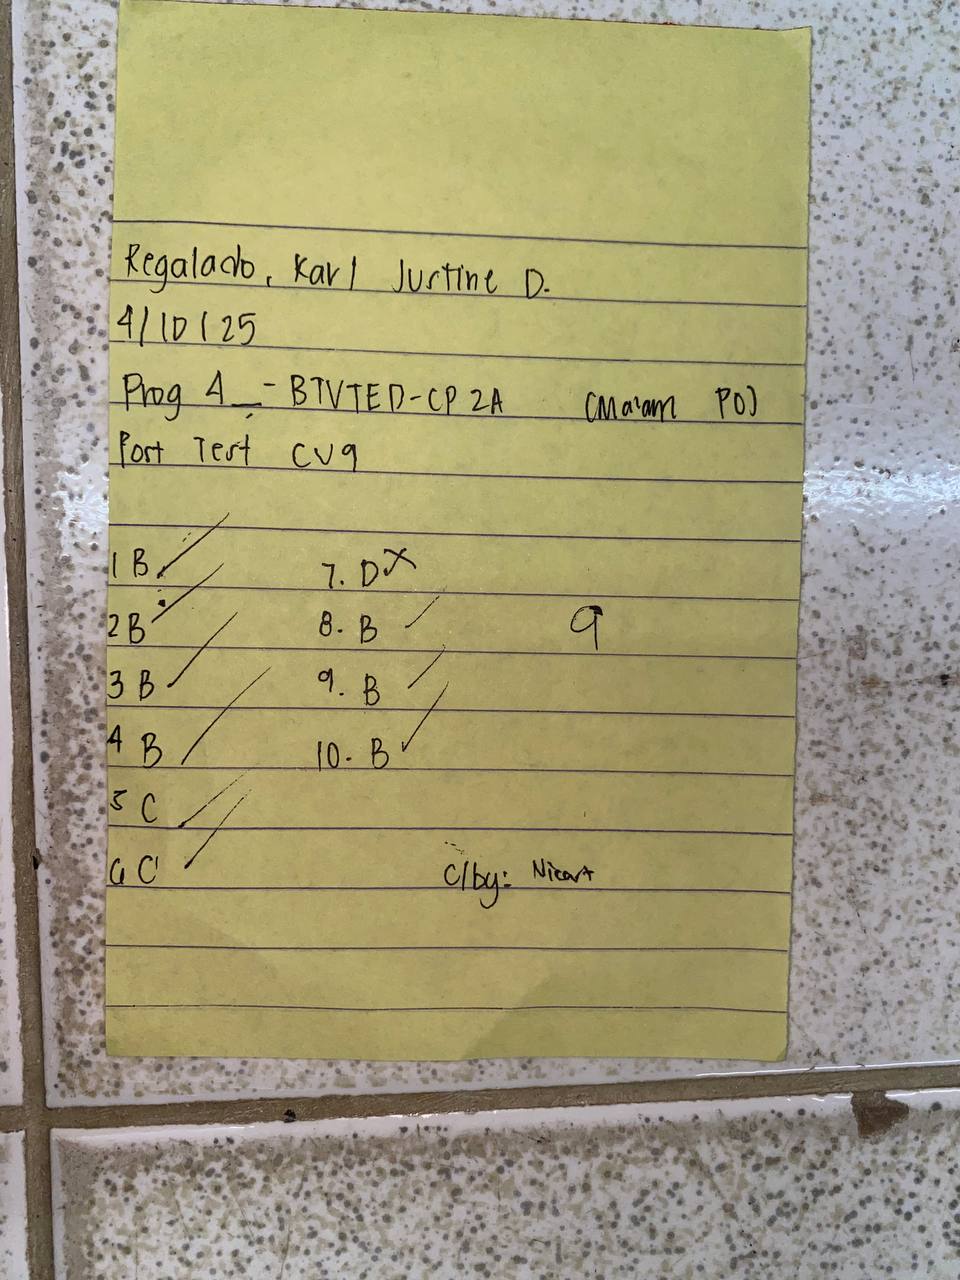 Regalado, Karl Justine D.
4/10/25
Prog 4 _- BTVTED-CP 2A (Ma'am PO)
Post Test CU9
1 B
2 B
3 B
4 B
5 C
6 C
7. D X
8. B
9. B
10. B
9
C/by: Nicart